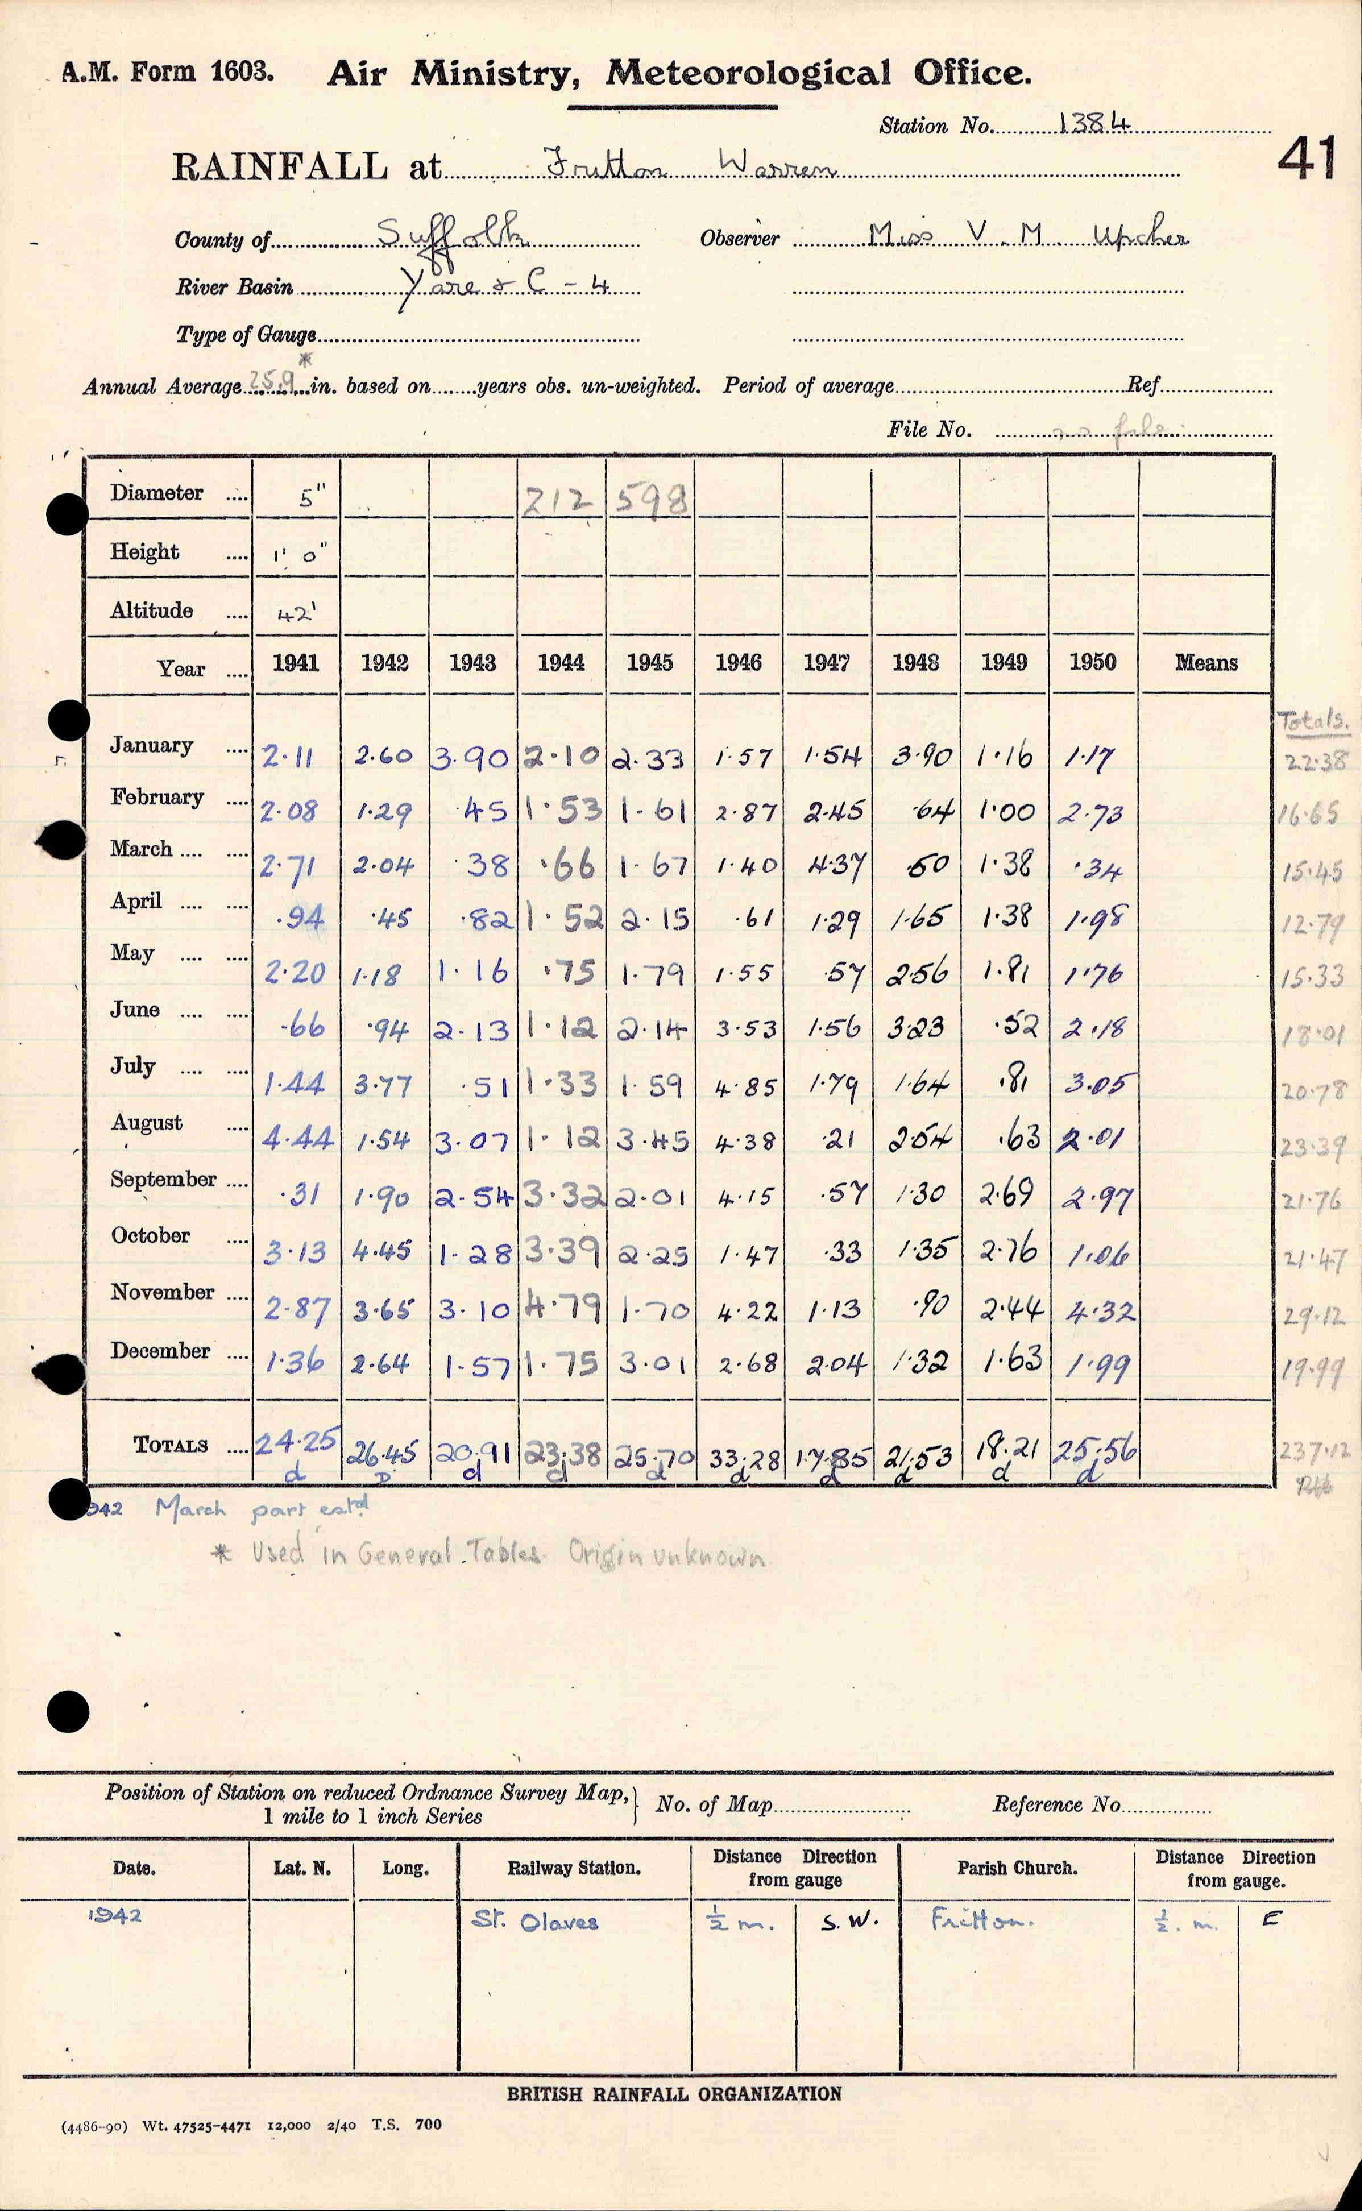 A.M. Form 1603. Air Ministry, Meteorological Office.
Station No. 1384
41
RAINFALL at Fritton Warren
County of Suffolk Observer Miss V. M. Upcher
River Basin Yare & C - 4
Type of Gauge
Annual Average 25.9* in. based on years obs. un-weighted. Period of average Ref.
File No. no file.
Diameter .... 5" 212 598
Height .... 1' 0"
Altitude .... 42'
Year .... 1941 1942 1943 1944 1945 1946 1947 1948 1949 1950 Means
Totals.
January .... 2.11 2.60 3.90 2.10 2.33 1.57 1.54 3.90 1.16 1.17 22.38
February .... 2.08 1.29 .45 1.53 1.61 2.87 2.45 .64 1.00 2.73 16.65
March .... .... 2.71 2.04 .38 .66 1.67 1.40 4.37 .50 1.38 .34 15.45
April .... .... .94 .45 .82 1.52 2.15 .61 1.29 1.65 1.38 1.98 12.79
May .... .... 2.20 1.18 1.16 .75 1.79 1.55 .57 2.56 1.81 1.76 15.33
June .... .... .66 .94 2.13 1.12 2.14 3.53 1.56 3.23 .52 2.18 18.01
July .... .... 1.44 3.77 .51 1.33 1.59 4.85 1.79 1.64 .81 3.05 20.78
August .... 4.44 1.54 3.07 1.12 3.45 4.38 .21 2.54 .63 2.01 23.39
September .... .31 1.90 2.54 3.32 2.01 4.15 .57 1.30 2.69 2.97 21.76
October .... 3.13 4.45 1.28 3.39 2.25 1.47 .33 1.35 2.76 1.06 21.47
November .... 2.87 3.65 3.10 4.79 1.70 4.22 1.13 .90 2.44 4.32 29.12
December .... 1.36 2.64 1.57 1.75 3.01 2.68 2.04 1.32 1.63 1.99 19.99
TOTALS .... 24.25 26.45 20.91 23.38 25.70 33.28 17.85 21.53 18.21 25.56 237.12
d D d d d d d d d d
1942 March part estd
* Used in General Tables. Origin unknown.
Position of Station on reduced Ordnance Survey Map, 1 mile to 1 inch Series } No. of Map Reference No.
Date. Lat. N. Long. Railway Station. Distance Direction from gauge Parish Church. Distance Direction from gauge.
1942 St. Olaves ½ m. S.W. Fritton. ½. m. E
BRITISH RAINFALL ORGANIZATION
(4486-90) Wt. 47525-4471 12,000 2/40 T.S. 700